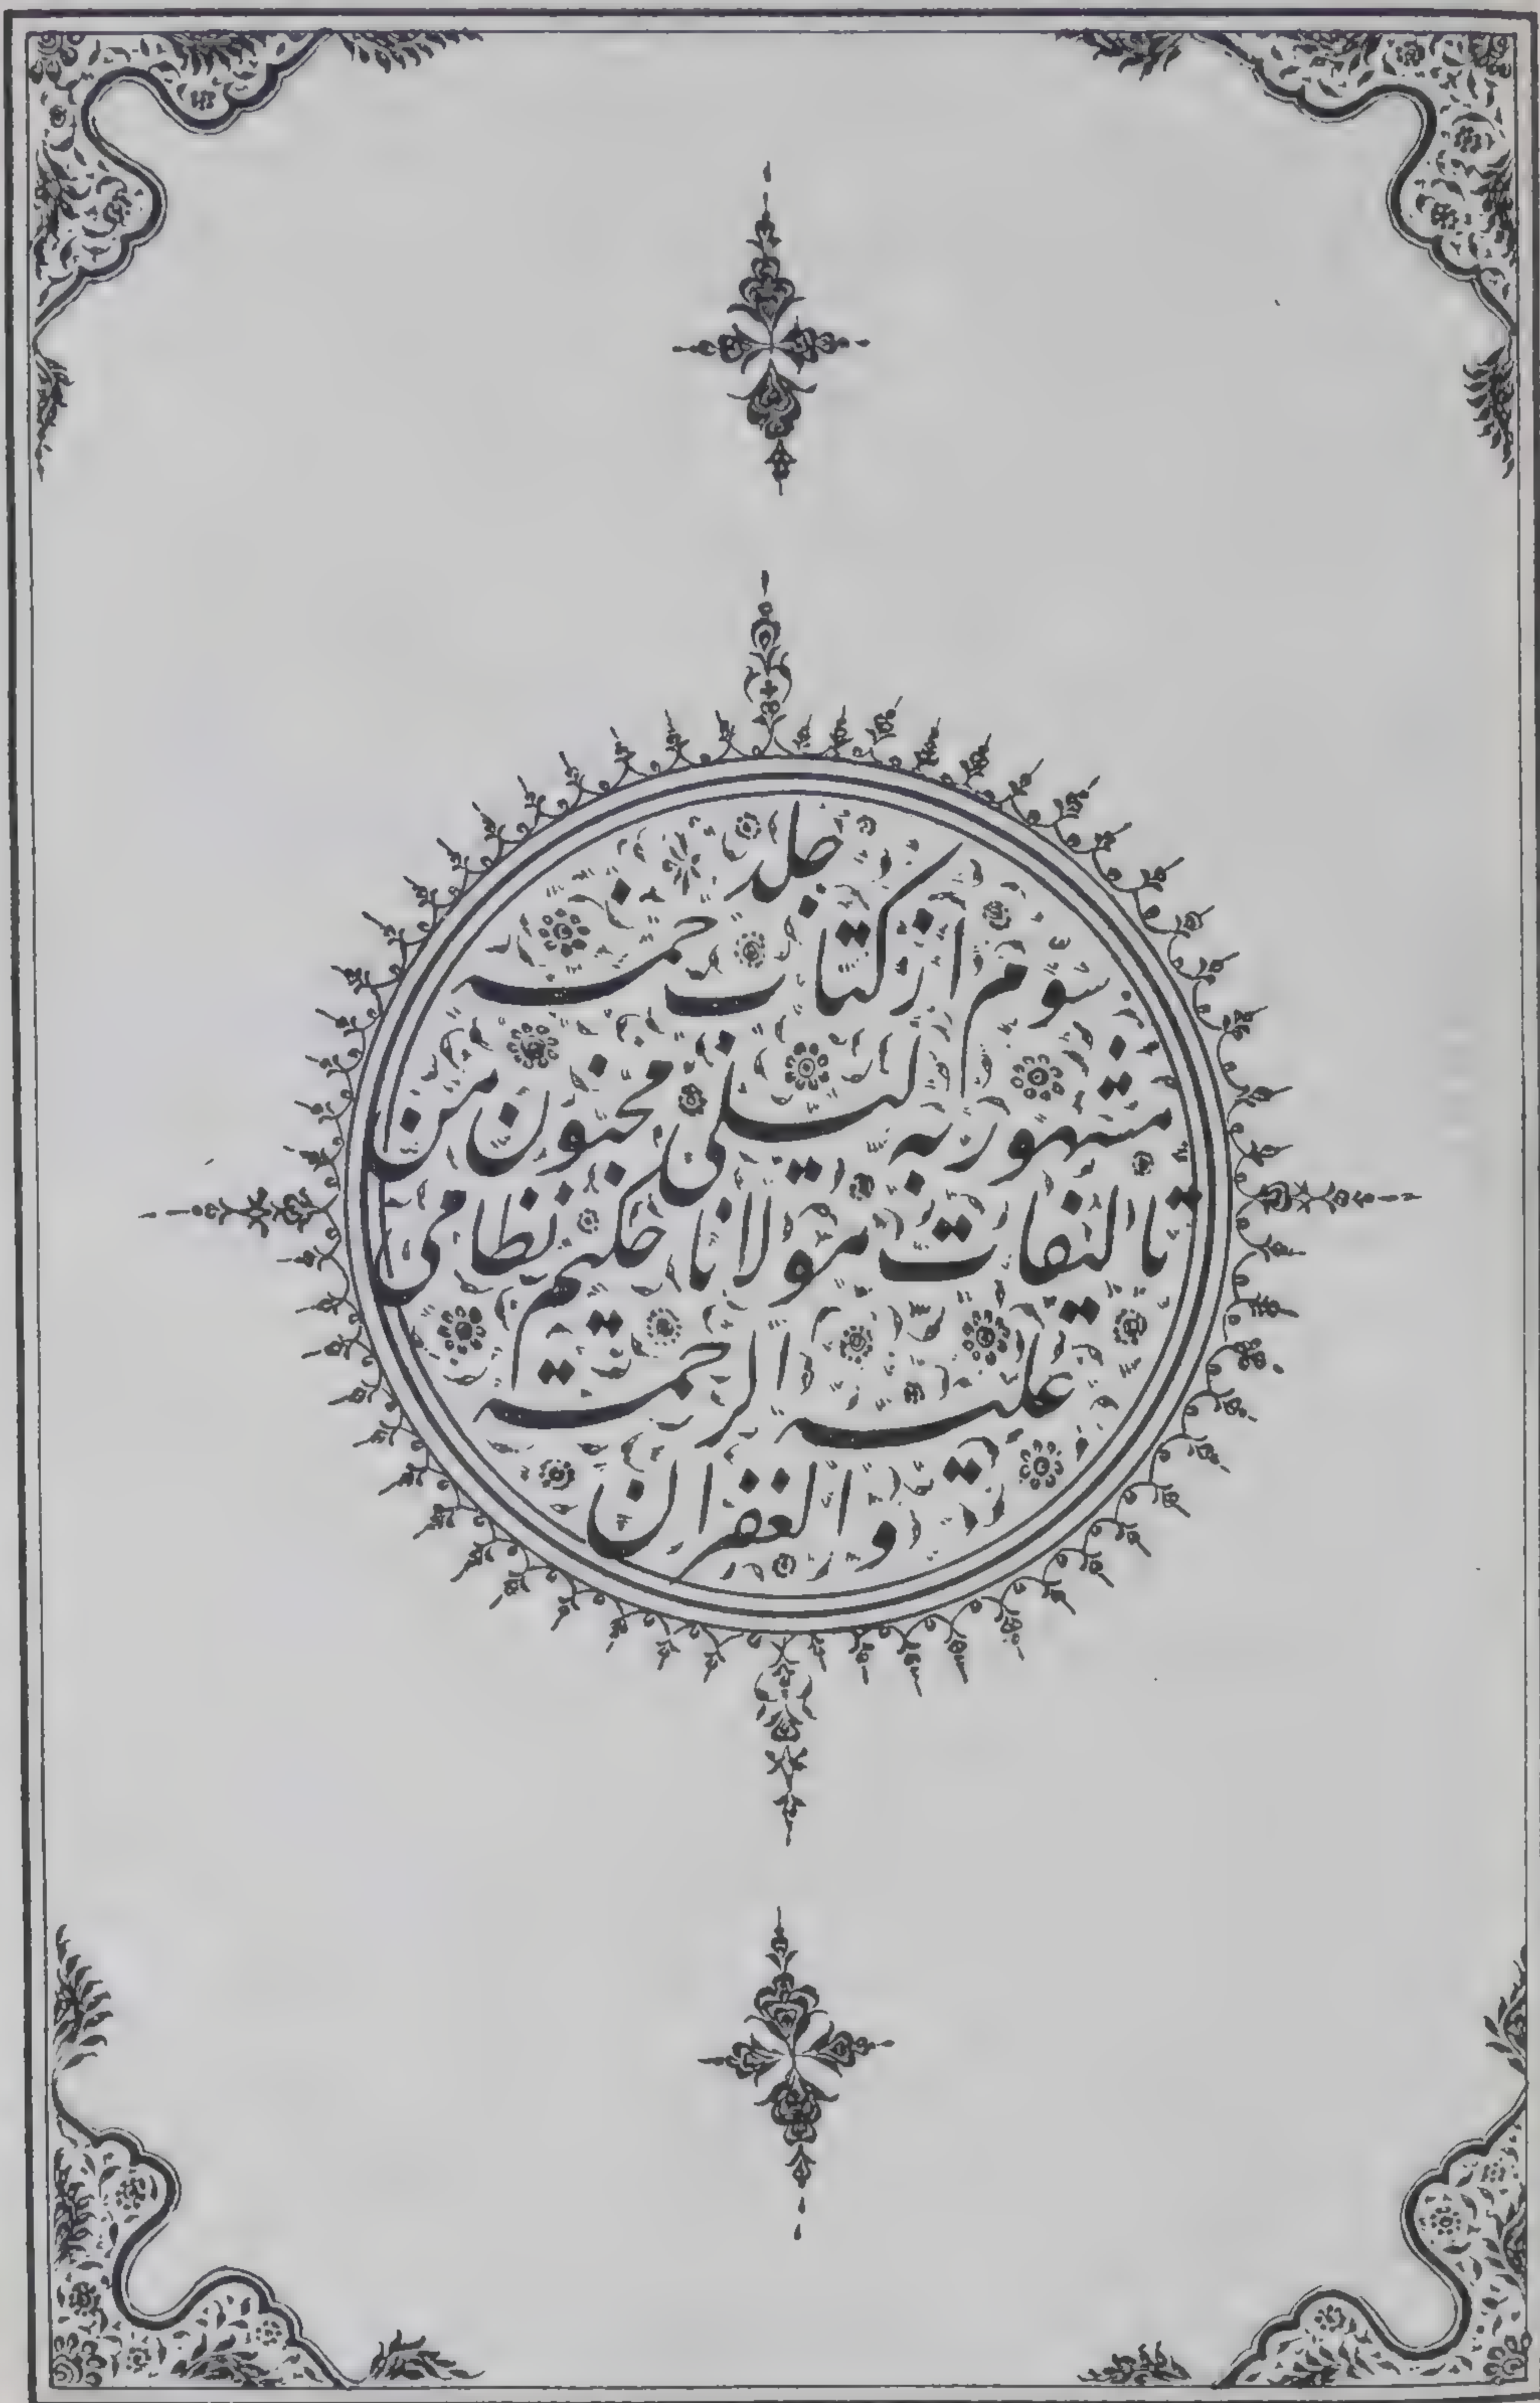 جلد
سوّم از کتاب خمسه
مشهور به لیلی مجنون من
تالیفات مولانا حکیم نظامی
علیه الرحمة
و الغفران